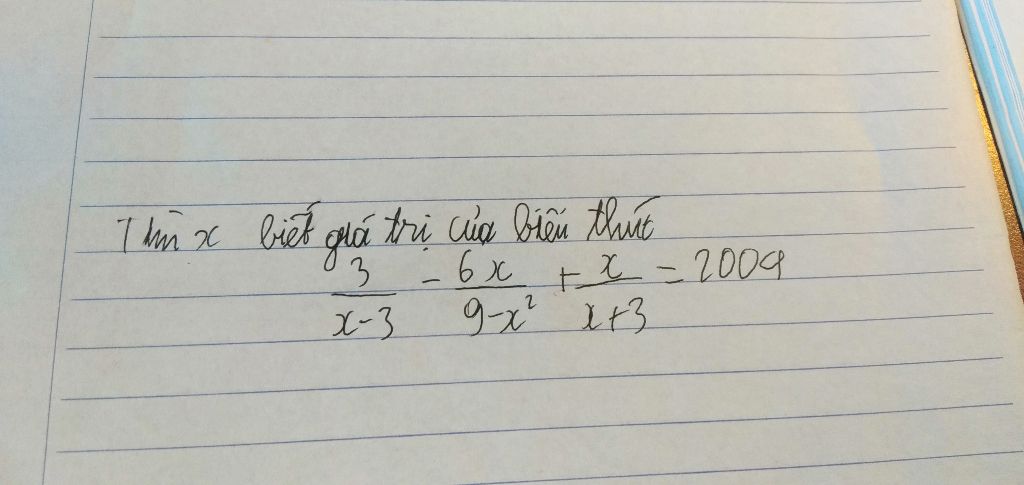 Tìm x biết giá trị của biểu thức
3/(x-3) - 6x/(9-x²) + x/(x+3) = 2009